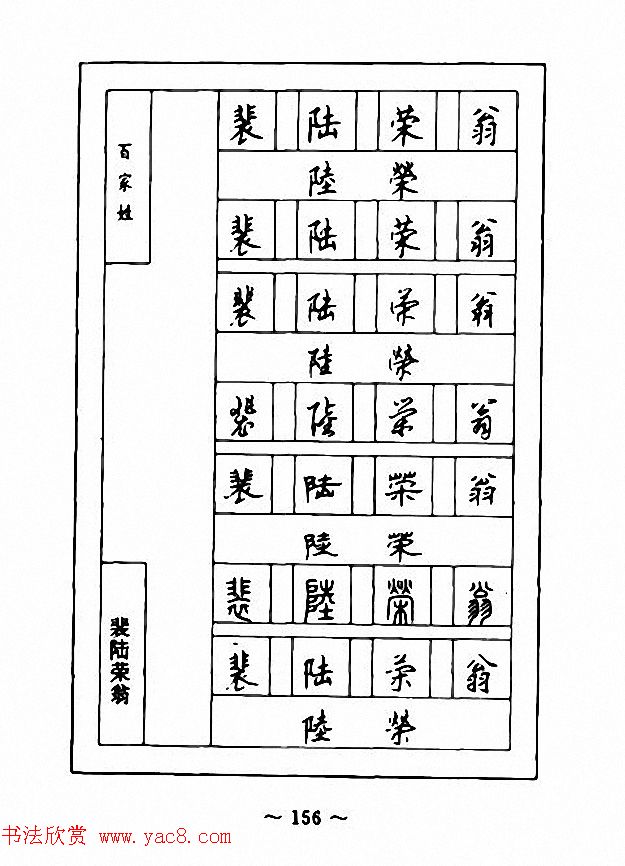 百家姓
裴 陆 荣 翁
陸 榮
裴 陆 荣 翁
裴 陆 荣 翁
陸 榮
裴 陆 荣 翁
裴 陆 荣 翁
陸 榮
裴 陸 榮 翁
裴 陆 荣 翁
陸 榮
裴陆荣翁
~ 156 ~
书法欣赏 www.yac8.com